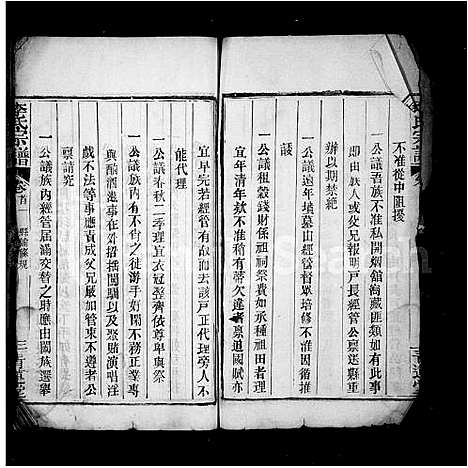 不准從中阻擾
一公議吾族不准私開烟舘窩藏匪類如有此
即由鉄人或父兄報明戶長經管公禀送縣重
辦以期禁絶
一公議遠年墳墓山經管督眾培修不因循推
諉
一公議租穀錢財係祖祠祭費如承種祖田者理
宜年清年款不准稍有蒂欠違者禀追國賦亦
宜早完若經管有不在家者該戶正代理旁人不
能代理
一公議春秋二季理宜衣冠整齊依尊卑與祭
一公議族內有不肖之徒游手好閒不務正業專
與酗酒滋事在外招搖闖騙以及聚賭演淫
戲不法等事應責成父兄嚴加管束不遵者公
禀請究
一公議族內經管屆滿交替之時應由闔族選舉
李氏宗譜
卷首
經管條規
三
青蓮堂